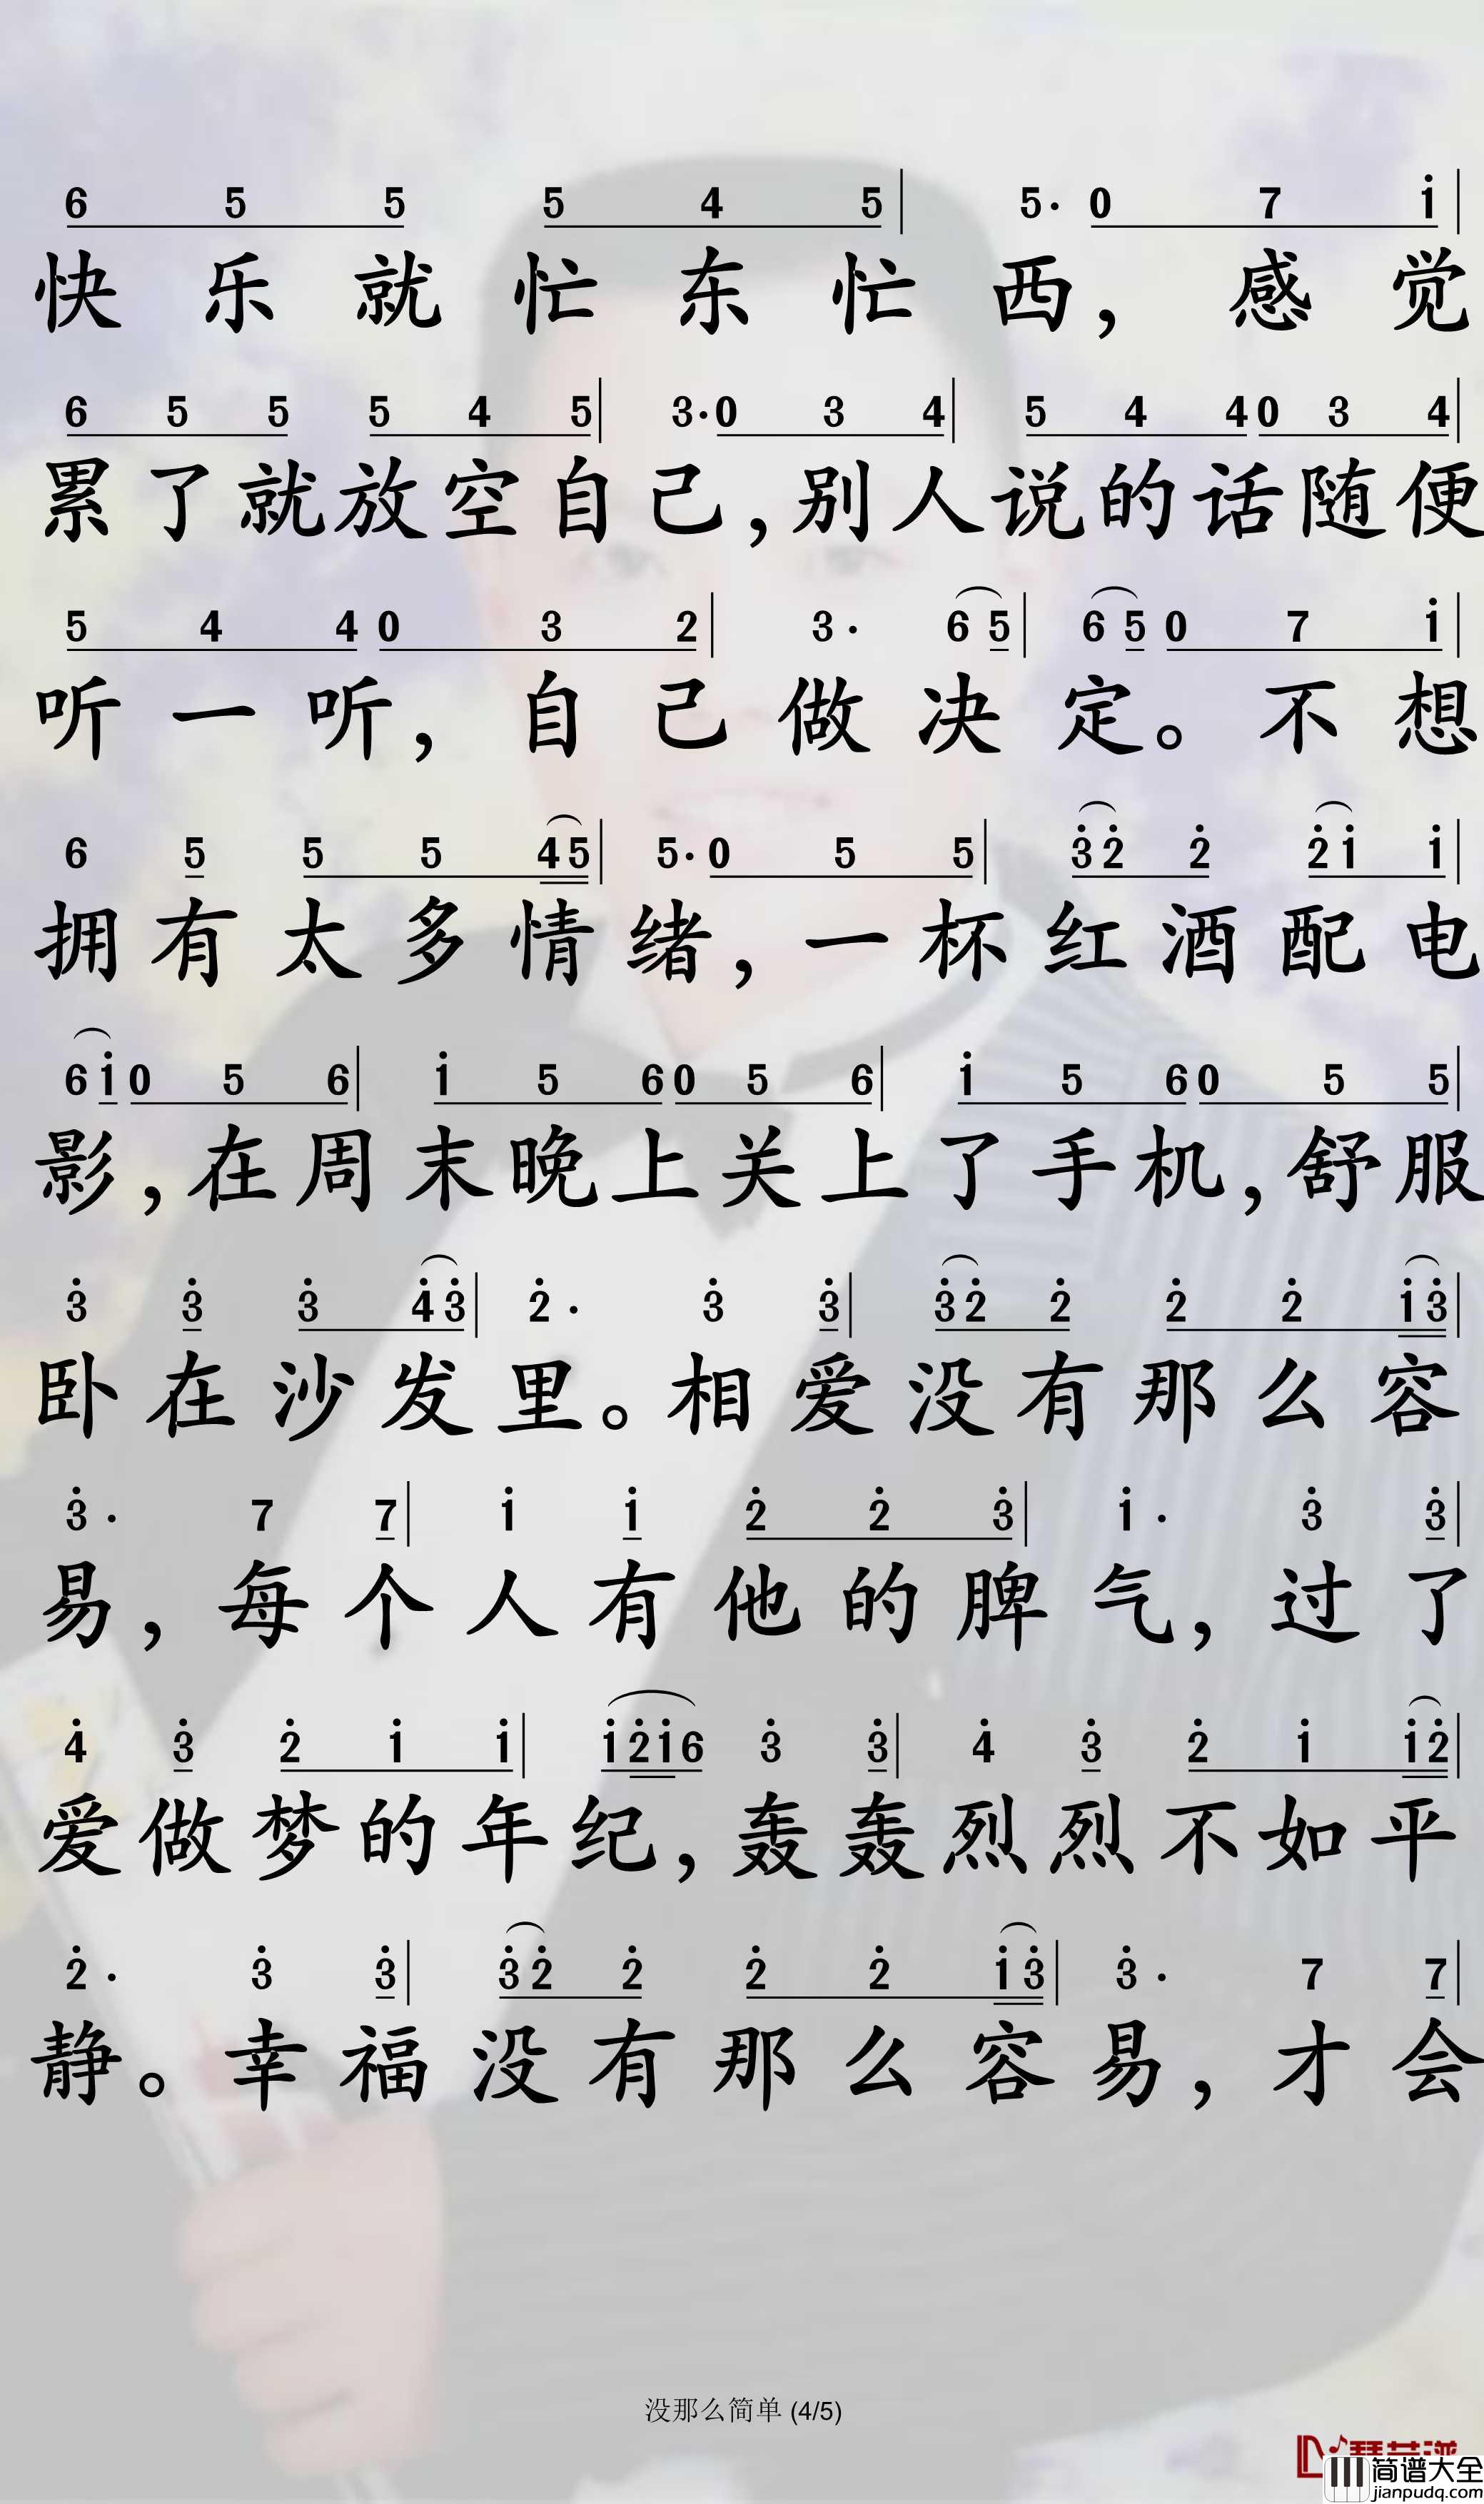 6 5 5 5 4 5 | 5· 0 7 i |
快乐就忙东忙西，感觉
6 5 5 5 4 5 | 3· 0 3 4 | 5 4 4 0 3 4 |
累了就放空自己，别人说的话随便
5 4 4 0 3 2 | 3· 6 5 | 6 5 0 7 i |
听一听，自己做决定。不想
6 5 5 5 4 5 | 5· 0 5 5 | 3̇ 2̇ 2̇ 2̇ i i |
拥有太多情绪，一杯红酒配电
6 i 0 5 6 | i 5 6 0 5 6 | i 5 6 0 5 5 |
影，在周末晚上关上了手机，舒服
3̇ 3̇ 3̇ 4̇ 3̇ | 2̇· 3̇ 3̇ | 3̇ 2̇ 2̇ 2̇ 2̇ i 3̇ |
卧在沙发里。相爱没有那么容
3̇· 7 7 | i i 2̇ 2̇ 3̇ | i· 3̇ 3̇ |
易，每个人有他的脾气，过了
4̇ 3̇ 2̇ i i | i 2̇ i 6 3̇ 3̇ | 4̇ 3̇ 2̇ i i 2̇ |
爱做梦的年纪，轰轰烈烈不如平
2̇· 3̇ 3̇ | 3̇ 2̇ 2̇ 2̇ 2̇ i 3̇ | 3̇· 7 7 |
静。幸福没有那么容易，才会
没那么简单 (4/5)
简谱大全
jianpudq.com